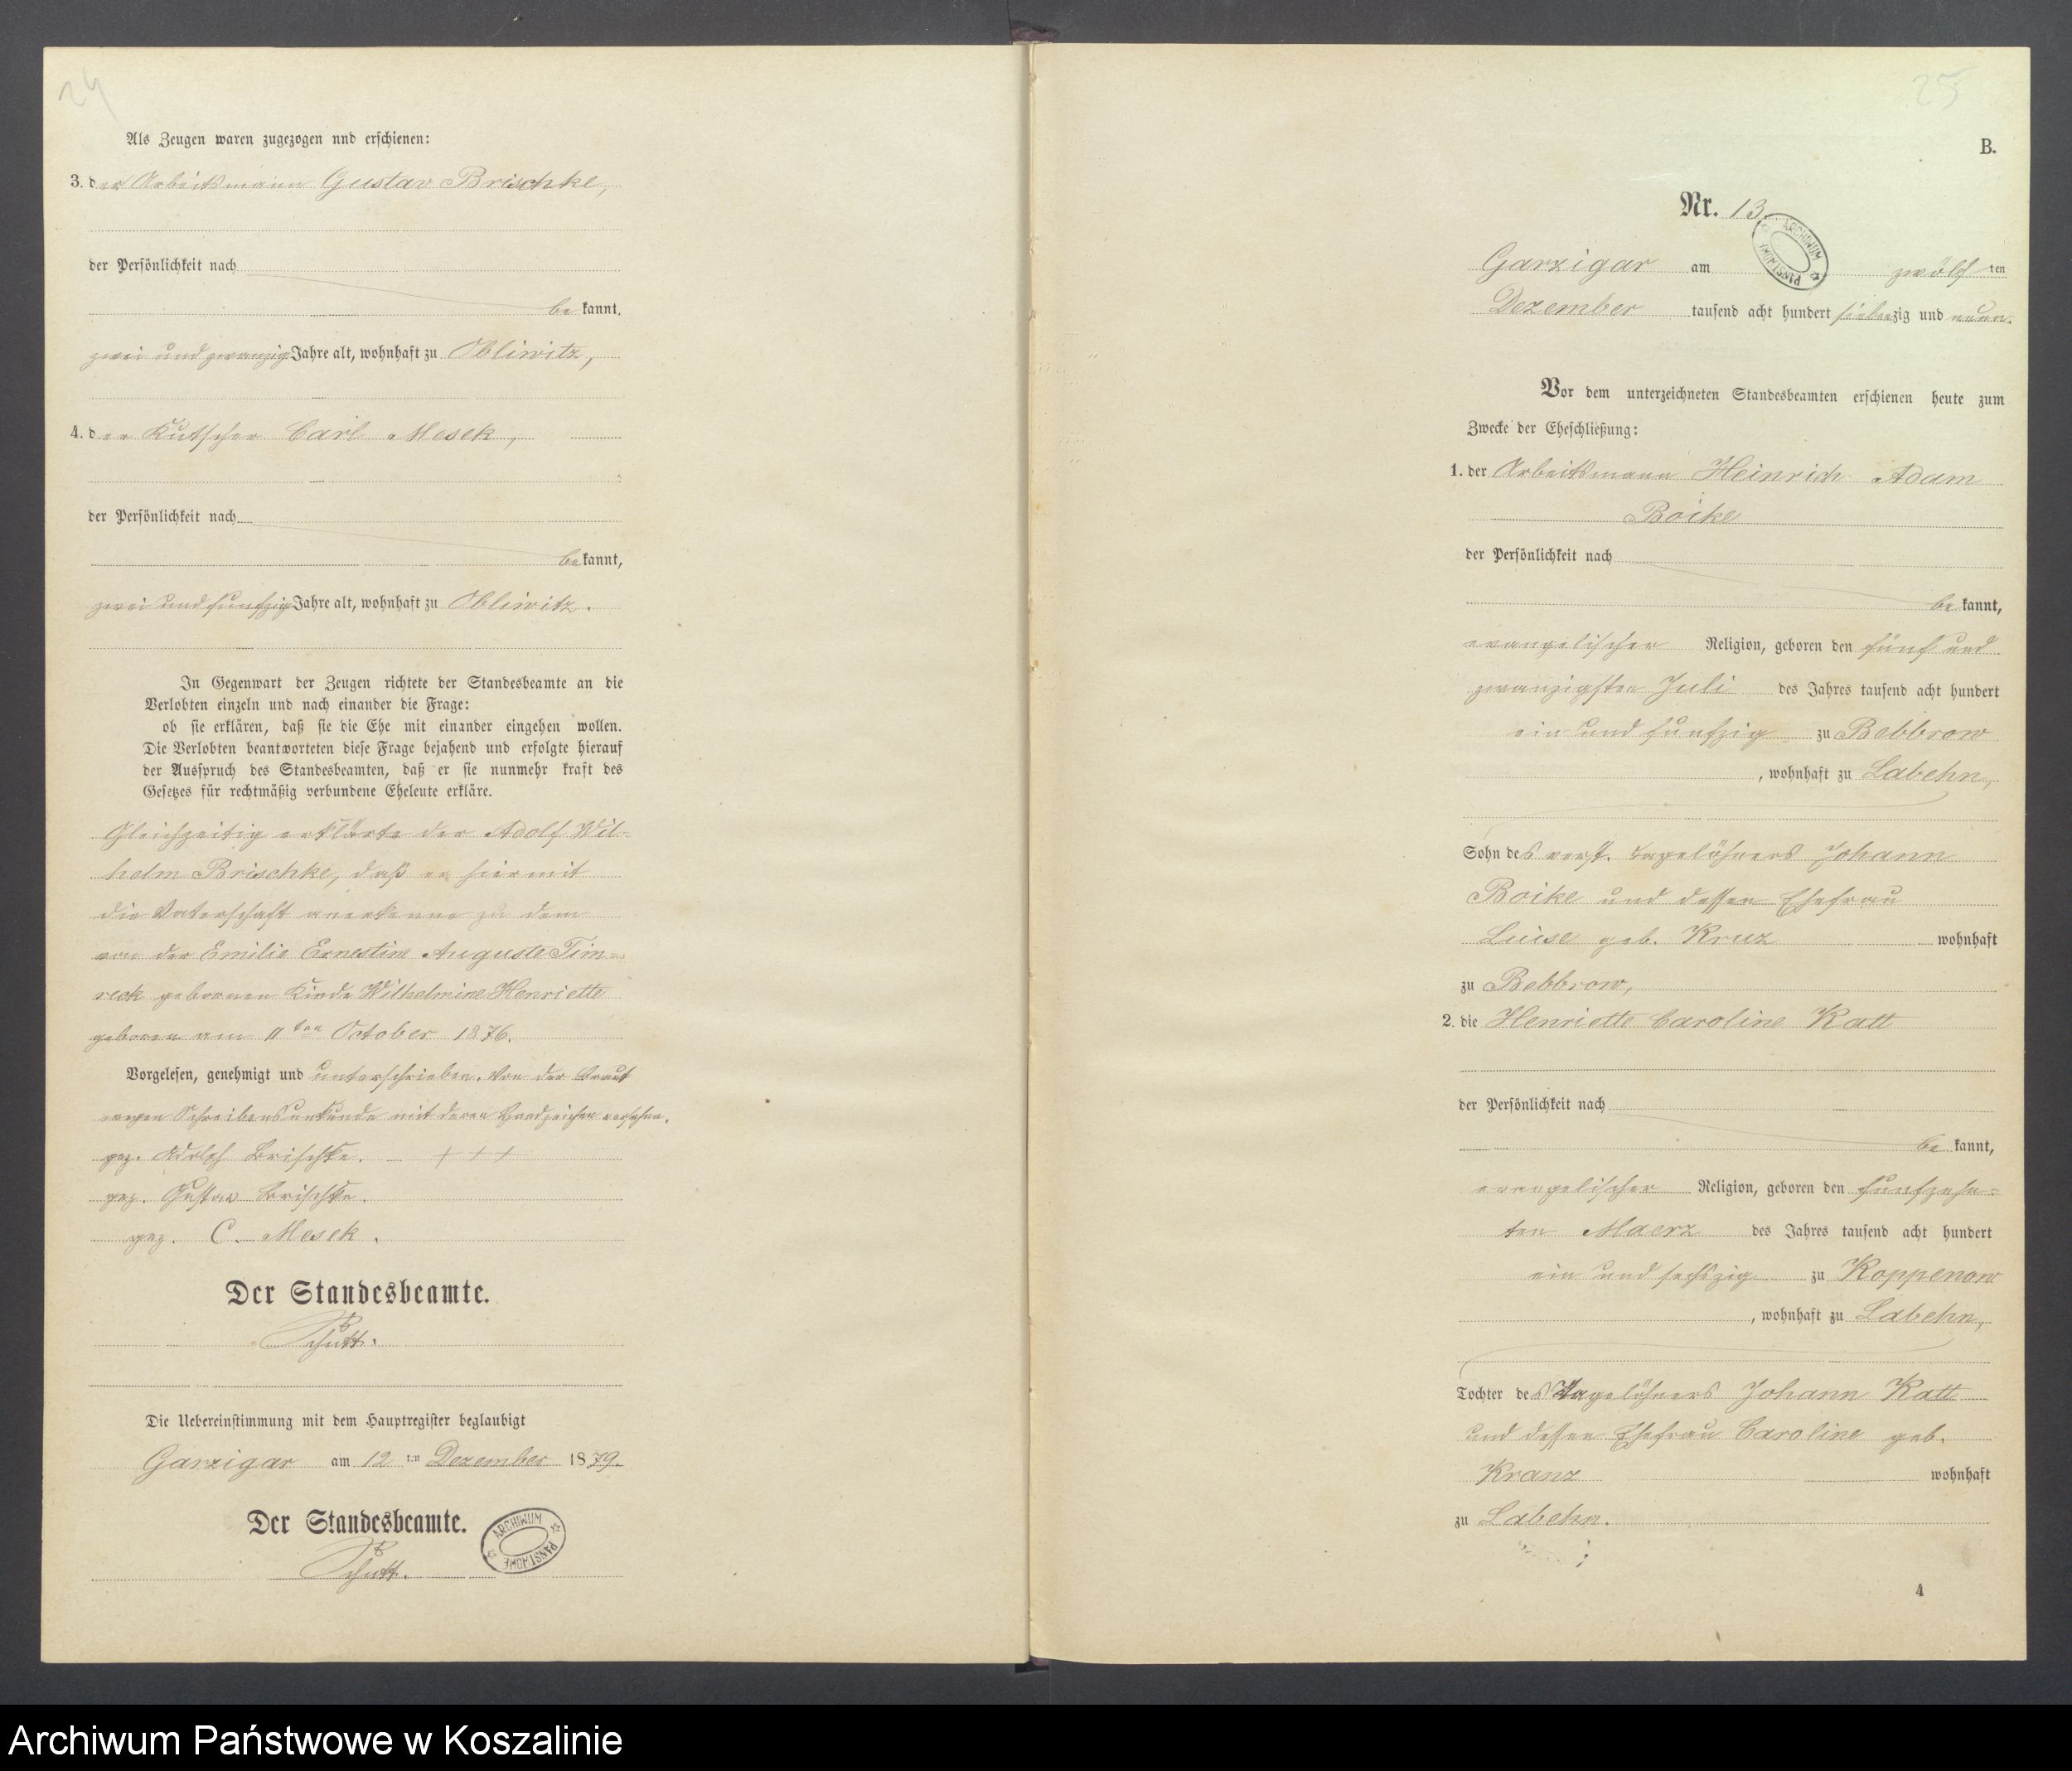 24
Als Zeugen waren zugezogen nnd erschienen:
3. der Arbeitsmann Gustav Brischke,
der Persönlichkeit nach
be kannt,
zwei und zwanzig Jahre alt, wohnhaft zu Obliwitz,
4. der Kutscher Carl Mesek,
der Persönlichkeit nach
be kannt,
zwei und funfzig Jahre alt, wohnhaft zu Obliwitz.
In Gegenwart der Zeugen richtete der Standesbeamte an die
Verlobten einzeln und nach einander die Frage:
ob sie erklären, daß sie die Ehe mit einander eingehen wollen.
Die Verlobten beantworteten diese Frage bejahend und erfolgte hierauf
der Ausspruch des Standesbeamten, daß er sie nunmehr kraft des
Gesetzes für rechtmäßig verbundene Eheleute erkläre.
Gleichzeitig erklärte der Adolf Wil-
helm Brischke, daß er hiermit
die Vaterschaft anerkenne zu dem
von der Emilie Ernestine Auguste Tim-
reck gebornen Kinde Wilhelmine Henriette
geboren am 11ten October 1876.
Vorgelesen, genehmigt und unterschrieben. Von der Braut
wegen Schreibensunkunde mit deren Handzeichen versehen.
gez. Adolph Brischke. +++
gez. Gustav Brischke.
gez. C. Mesek.
Der Standesbeamte.
Schutt.
Die Uebereinstimmung mit dem Hauptregister beglaubigt
Garzigar am 12 ten Dezember 1879.
Der Standesbeamte.
ARCHIWUM PAŃSTWOWE
Schutt.
25
B.
Nr. 13.
ARCHIWUM PAŃSTWOWE
Garzigar am zwölf ten
Dezember tausend acht hundert siebenzig und neun.
Vor dem unterzeichneten Standesbeamten erschienen heute zum
Zwecke der Eheschließung:
1. der Arbeitsmann Heinrich Adam
Boike
der Persönlichkeit nach
be kannt,
evangelischer Religion, geboren den fünf und
zwanzigsten Juli des Jahres tausend acht hundert
ein und funfzig zu Bebbrow
, wohnhaft zu Labehn,
Sohn des verst. Tagelöhners Johann
Boike und dessen Ehefrau
Luise geb. Kruz wohnhaft
zu Bebbrow,
2. die Henriette Caroline Katt
der Persönlichkeit nach
be kannt,
evangelischer Religion, geboren den funfzehn-
ten Maerz des Jahres tausend acht hundert
ein und sechszig zu Koppenow
, wohnhaft zu Labehn,
Tochter des Tagelöhners Johann Katt
und dessen Ehefrau Caroline geb.
Kranz wohnhaft
zu Labehn.
4
Archiwum Państwowe w Koszalinie